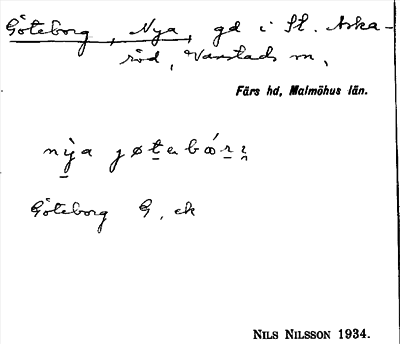 Göteborg, Nya, gd i St. Aska-
röd, Vanstads sn,
Färs hd, Malmöhus län.
nỳa
Göteborg G, ek
NILS NILSSON 1934.